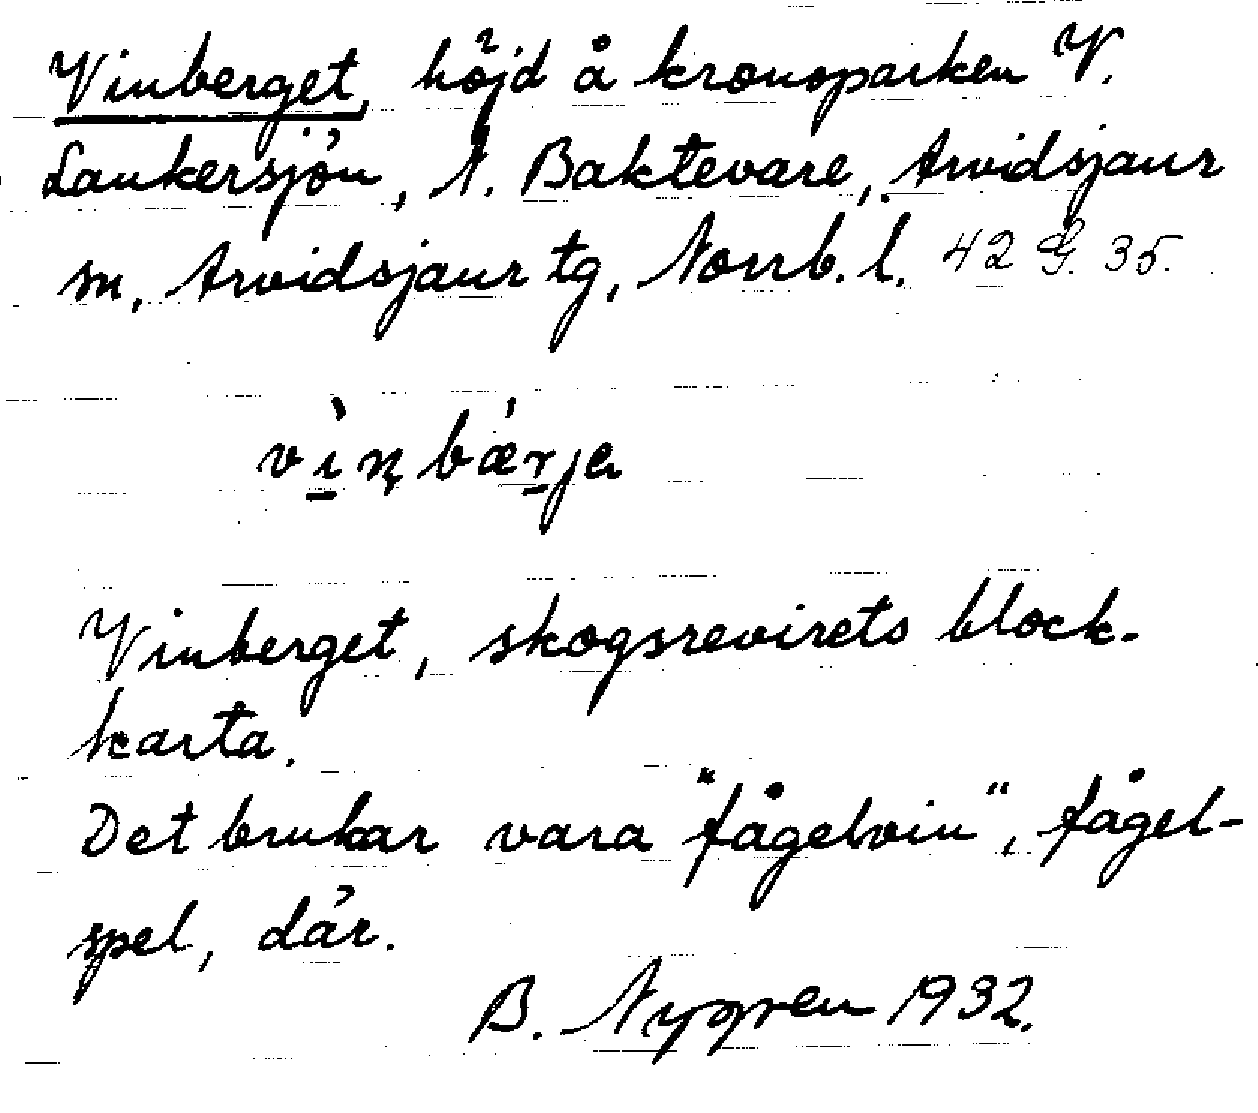 Vinberget, höjd å kronoparken V.
Laukersjön, N. Baktevare, Arvidsjaur
sn, Arvidsjaur tg, Norrb. l. 42 G. 35.
vìṇbǽrja
Vinberget, skogsrevirets block-
karta.
Det brukar vara "fågelvin", fågel-
spel, där.
B. Nygren 1932.